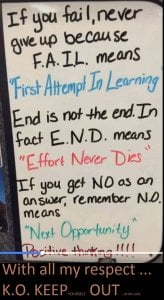 If you fail, never
give up because
F.A.I.L. means
"First Attempt In Learning
End is not the end. In
fact E.N.D. means
"Effort Never Dies"
If you get NO as an
answer, remember N.O.
means
"Next Opportunity"
Positive thinking!!!!
With all my respect ...
K.O. KEEP OUT